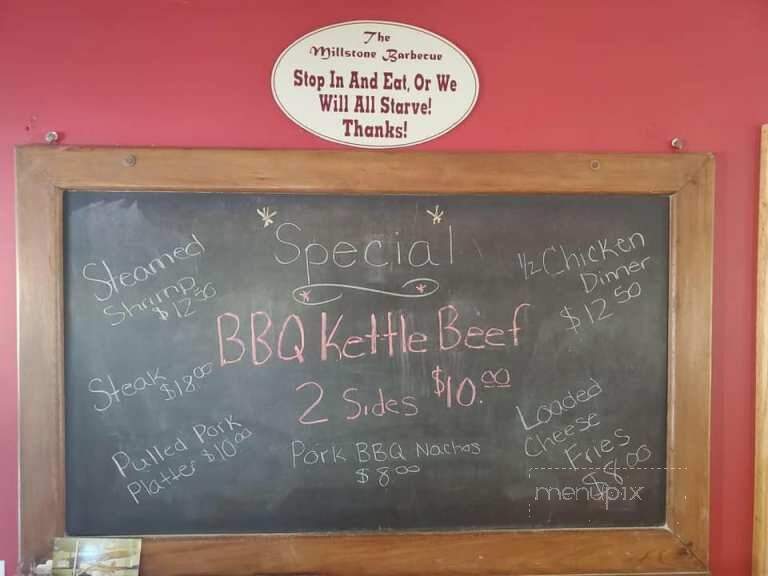 The
Millstone Barbecue
Stop In And Eat, Or We
Will All Starve!
Thanks!
Special
Steamed
Shrimp
$12.50
1/2 Chicken
Dinner
$12.50
BBQ Kettle Beef
2 Sides $10.00
Steak $18.00
Pulled Pork
Platter $10.00
Pork BBQ Nachos
$8.00
Loaded
Cheese
Fries
$8.00
menupix